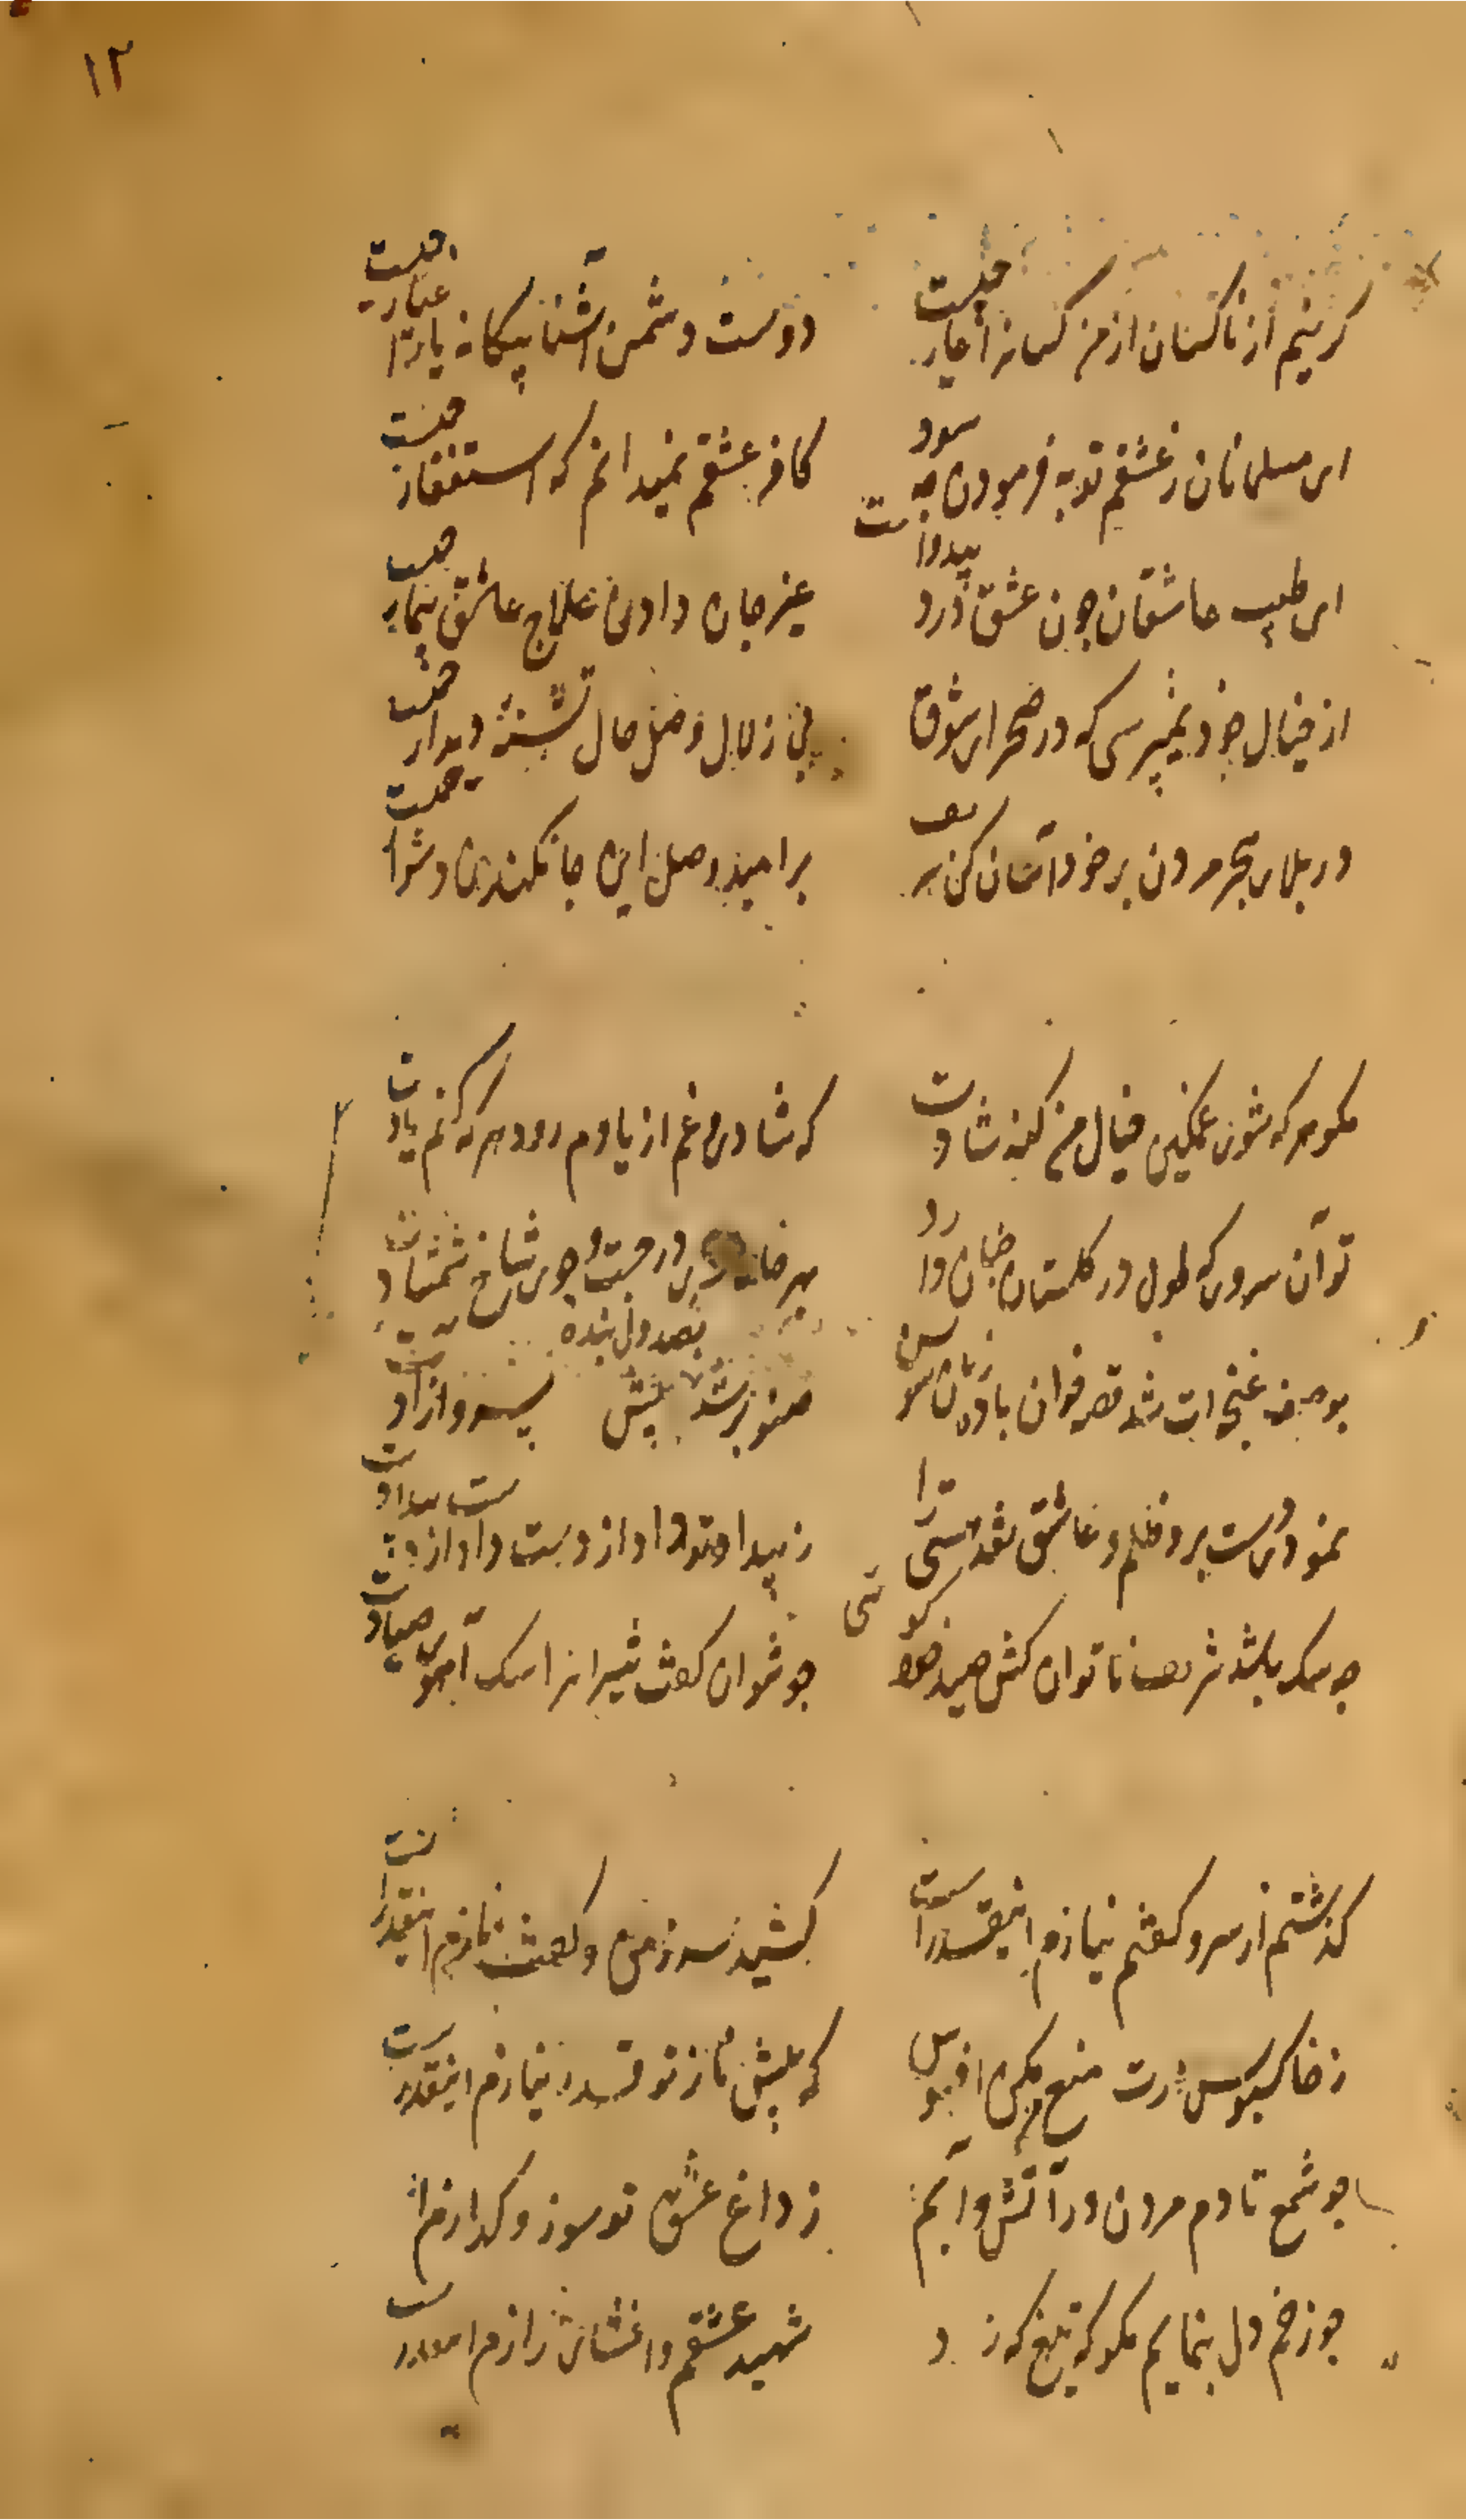 ١٢
کریم از ناکسان از من کسانرا عار چیست دوست دشمن آشنا بیکانه یارا عار چیست
ای مسلمانان ز عشقم توبه فرمودن چه سود کافر عشقم نمیدانم که استغفار چیست
ای طبیب عاشقان چون عشق درد بیدواست غیر جان دادن علاج عاشق بیمار چیست
از خیال خود نمیپرسی که در صحرای شوق بی زلال وصل حال تشنه دیدار چیست
در بلای هجر مردن بر خود آسان کن بر امید وصل این جانکندن دشوار چیست
مکو هر که شوی غمکین خیال من کند شادت که شادی و غم از یادم رود هر که کنم یادت
تو آن سروی که طوبی در کلستان جنان دارد در جست و جوی شاخ شمشادت
بوصف غنچه ات شد قصه خوان با ده زبان سوسن صنوبر شد بصد دل بنده پیش سرو آزادت
نمود دست برد ظلم و عاشق شد ترا ز بیداد تو داد از دست داد از دست بیدادت
چو سک باشد شریف ناتوان کش صید خود چو نتوان کفت شیرانرا سک آهوی صیادت
کذشتم از سر و کفتم نیازم اینقدر است کشید سر ز من و کفت نازم اینقدر است
ز خاکبوس درت منع مکن افسوس که پیش ناز تو قدر نیازم اینقدر است
چو شمع تا دم مردن در آتش و آبم ز داغ عشق تو سوز و کدازم
چو زخم دل بنمایم مکو که تیغ که زد شهید عشقم و افشای رازم اینقدر است